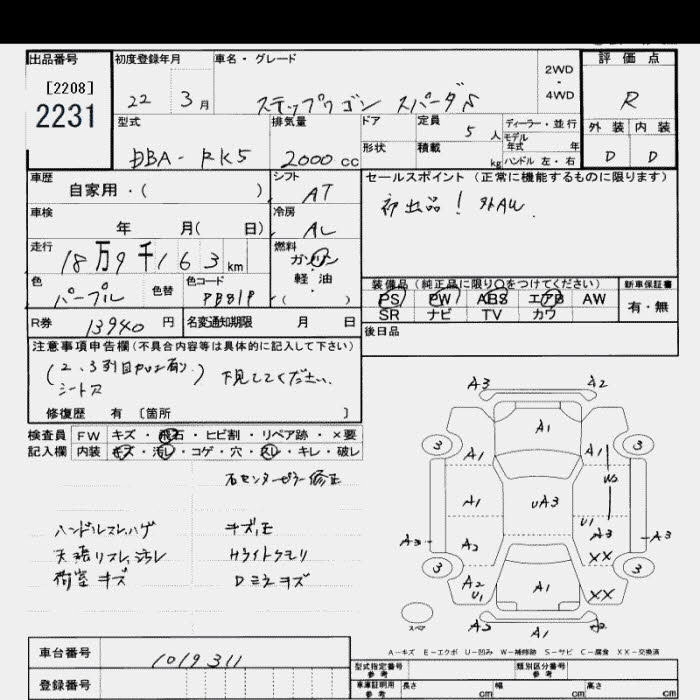 出品番号 初度登録年月 車名・グレード 評価点
[2208]
2231
22 3月 ステップワゴン スパーダS 2WD・4WD R
型式 排気量 ドア 定員 5人 ディーラー・並行 外装 内装
DBA-RK5 2000cc 形状 積載 kg モデル年式 年 ハンドル 左・右 D D
車歴 シフト セールスポイント (正常に機能するものに限ります)
自家用・( ) AT 初出品! 外AW.
車検 冷房
年 月( 日) AC
走行 燃料
18万9千163km ガソリン
色 色替 色コード 軽油 装備品 (純正品に限り○をつけてください) 新車保証書
パープル PB81P ( ) PS PW ABS エアB AW 有・無
SR ナビ TV カワ
R券 13940円 名変通知期限 月 日 後日品
注意事項申告欄 (不具合内容等は具体的に記入して下さい)
(2、3列目 有り) 下見してください.
シート
修復歴 有 [箇所 ]
検査員 FW キズ・飛石・ヒビ割・リペア跡・×要
記入欄 内装 キズ・汚レ・コゲ・穴・スレ・キレ・破レ
右センターピラー修正
ハンドルスレ、ハゲ キズ、E
天張リスレ、汚レ Hライトクモリ
荷室キズ Dミラキズ
A3 A2
A1
3 A1 A1 3
W2
A1 UA3
U1
A3 A2 A3 A3
XX
3 3
A2 A1 XX
U1
スペア A2 A1
A-キズ E-エクボ U-凹み W-補修跡 S-サビ C-腐食 XX-交換済
車台番号 1019311 型式指定番号 参考 類別区分番号 参考
登録番号 車庫証明用 参考 長さ cm 幅 cm 高さ cm